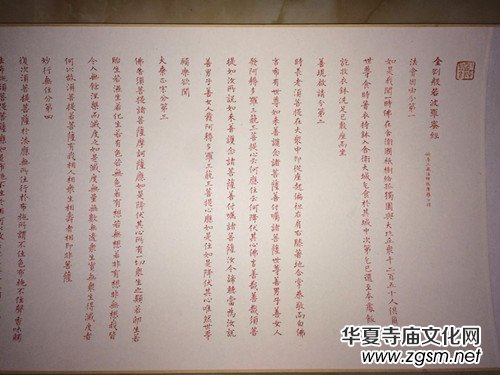 金剛般若波羅蜜經
法會因由分第一
如是我聞一時佛在舍衛國祇樹給孤獨園與大比丘眾千二百五十人俱爾時
世尊食時著衣持鉢入舍衛大城乞食於其城中次第乞已還至本處飯食
訖收衣鉢洗足已敷座而坐
善現啟請分第二
時長老須菩提在大眾中即從座起偏袒右肩右膝著地合掌恭敬而白佛
言希有世尊如來善護念諸菩薩善付囑諸菩薩世尊善男子善女人
發阿耨多羅三藐三菩提心云何應住云何降伏其心佛言善哉善哉須菩
提如汝所說如來善護念諸菩薩善付囑諸菩薩汝今諦聽當為汝說
善男子善女人發阿耨多羅三藐三菩提心應如是住如是降伏其心唯然世尊
願樂欲聞
大乘正宗分第三
佛告須菩提諸菩薩摩訶薩應如是降伏其心所有一切眾生之類若卵生若
胎生若濕生若化生若有色若無色若有想若無想若非有想非無想我皆
令入無餘涅槃而滅度之如是滅度無量無數無邊眾生實無眾生得滅度者
何以故須菩提若菩薩有我相人相眾生相壽者相即非菩薩
妙行無住分第四
復次須菩提菩薩於法應無所住行於布施所謂不住色布施不住聲香味觸
华夏寺庙文化网
www.zgsm.net